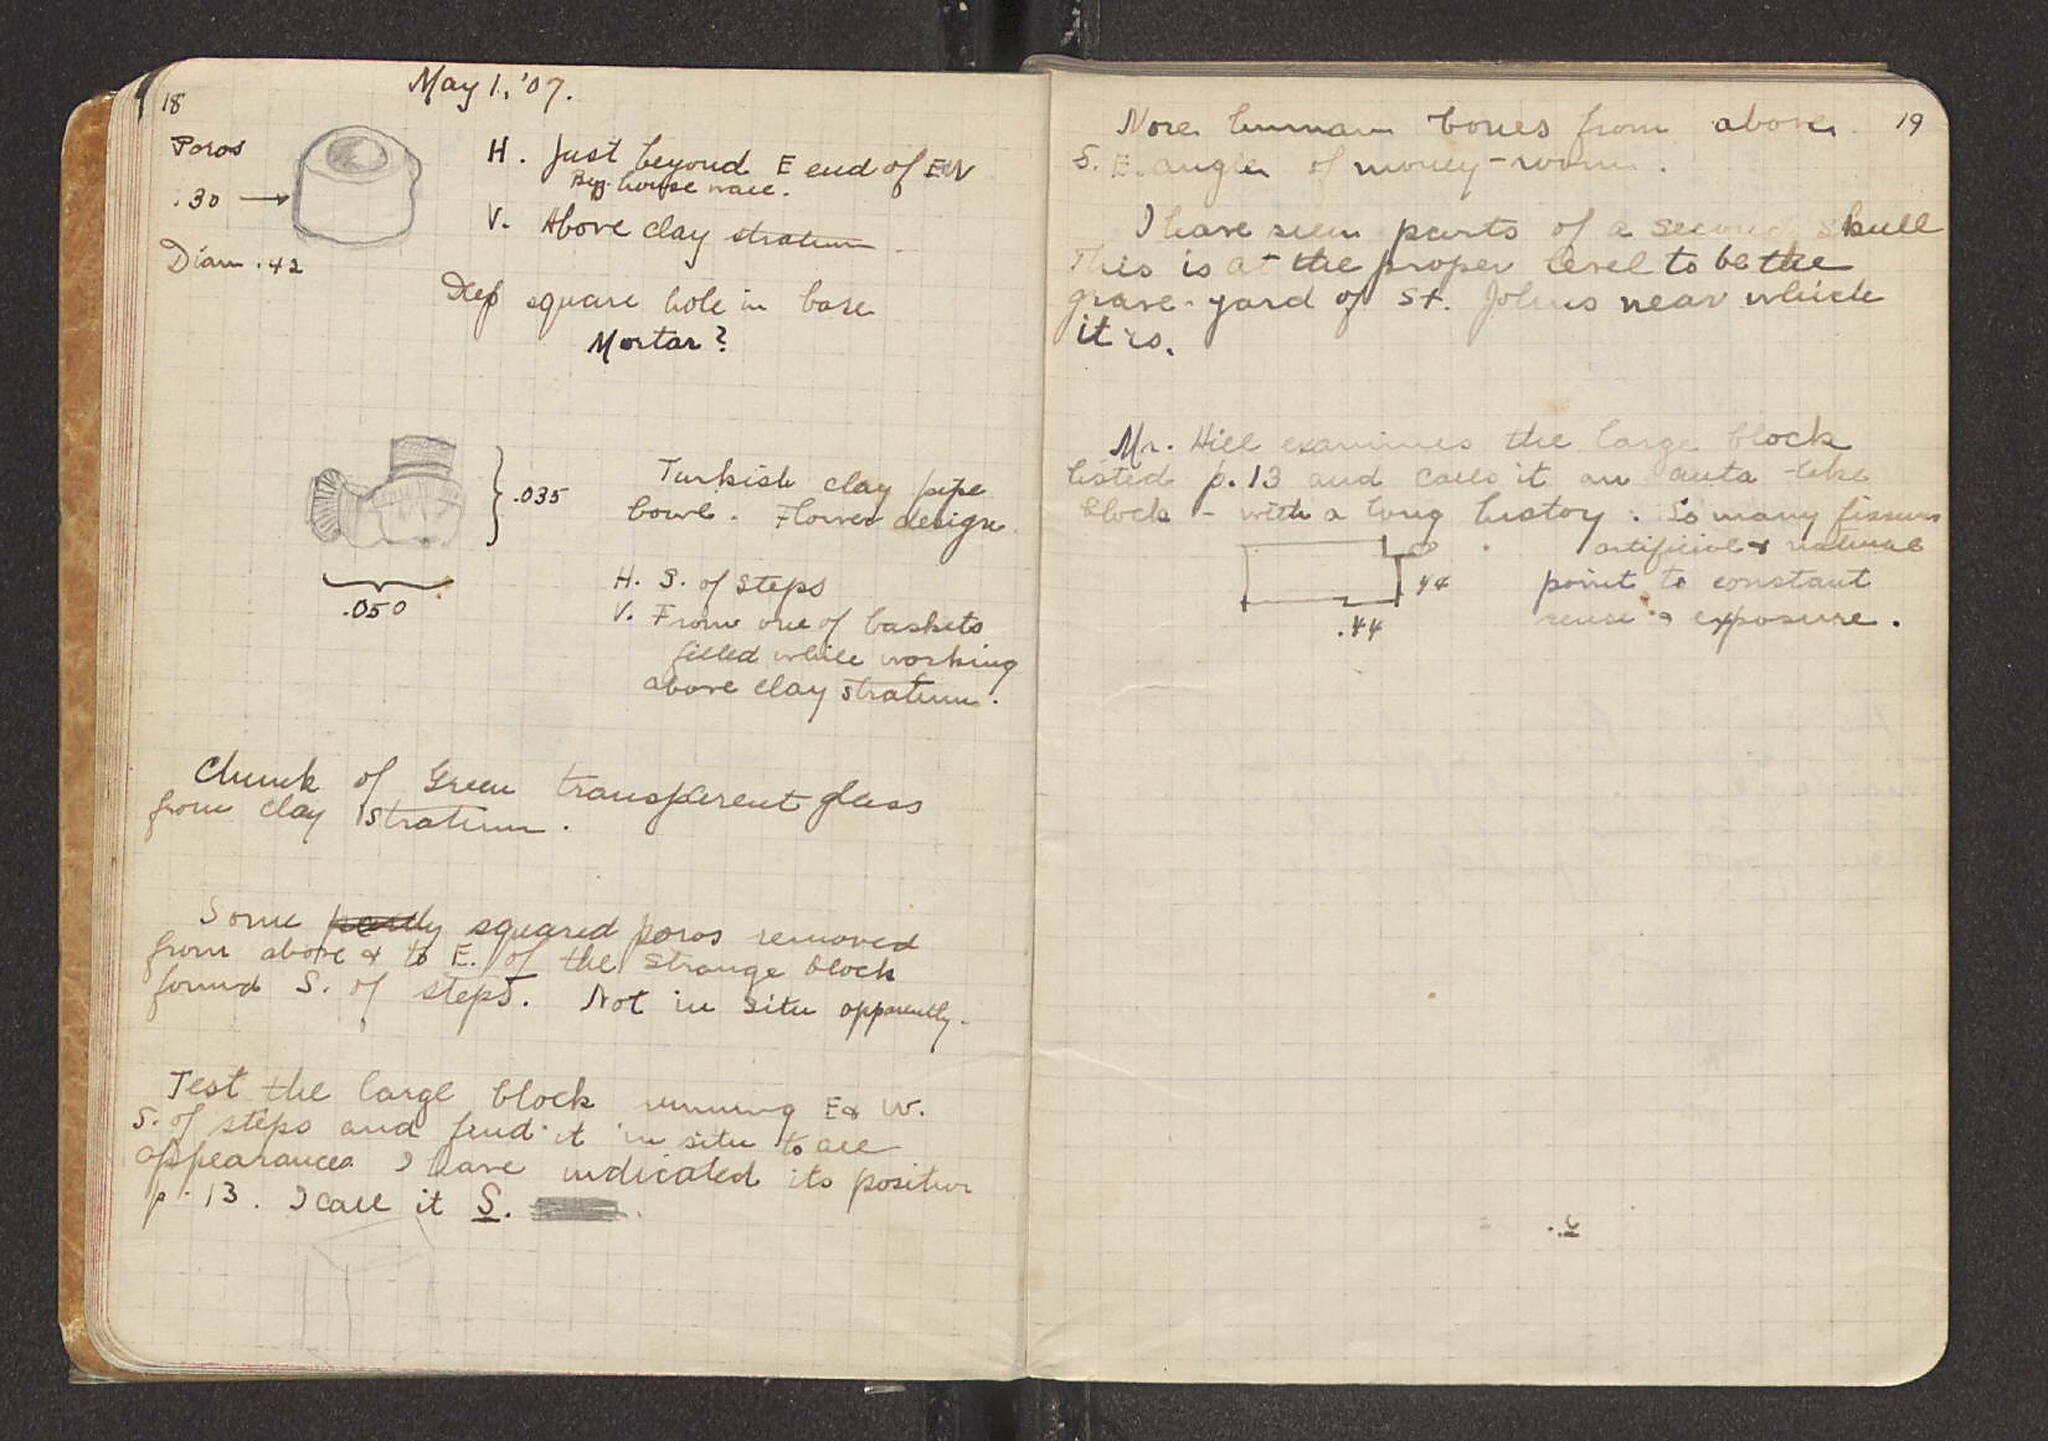 18
May 1, '07.
Poros
.30
Diam .42
H. Just beyond E end of EW
Byz. house wall.
V. Above clay stratum.
Deep square hole in base
Mortar?
.035
.050
Turkish clay pipe
bowl. Flower design.
H. S. of steps
V. From one of baskets
filled while working
above clay stratum.
Chunk of Green transparent glass
from clay stratum.
Some squared poros removed
from above & to E. of the strange block
found S. of steps. Not in situ apparently.
Test the large block running E & W.
S. of steps and find it in situ to all
appearances. I have indicated its position
p. 13. I call it S.
19
More human bones from above
S. E. angle of money-room.
I have seen parts of a second skull
This is at the proper level to be the
grave-yard of St. Johns near which
it is.
Mr. Hill examines the large block
listed p. 13 and calls it an anta-like
block - with a long history. So many fissures
artificial & natural
point to constant
reuse & exposure.
44
.44